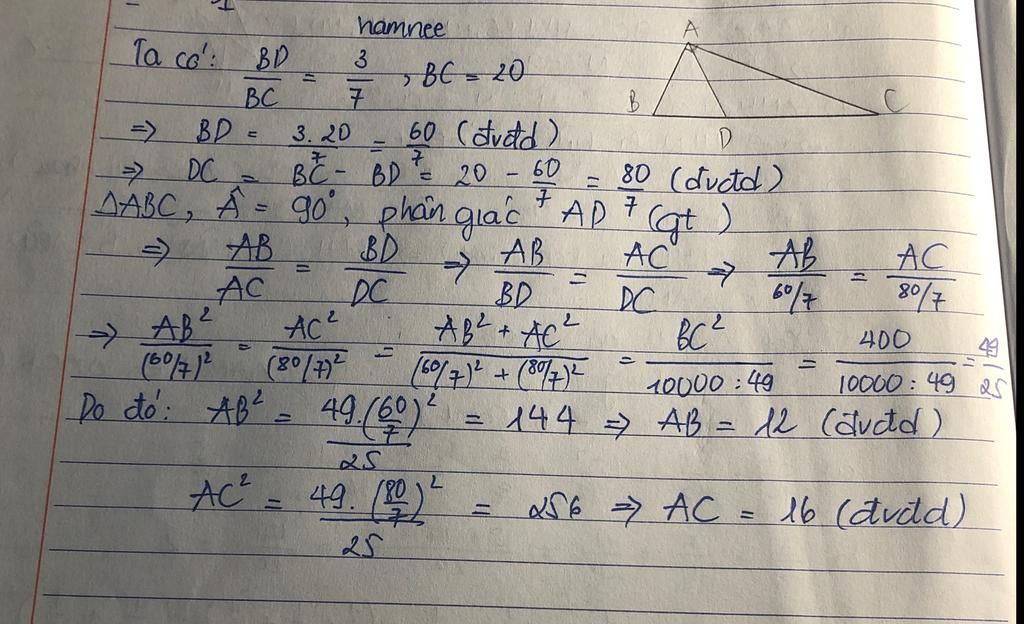 hamnee
Ta có: BD/BC = 3/7, BC = 20
⇒ BD = 3.20/7 = 60/7 (đvđd)
⇒ DC = BC - BD = 20 - 60/7 = 80/7 (đvđd)
ΔABC, Â = 90°, phân giác AD (gt)
⇒ AB/AC = BD/DC ⇒ AB/BD = AC/DC ⇒ AB/(60/7) = AC/(80/7)
⇒ AB²/(60/7)² = AC²/(80/7)² = (AB² + AC²)/((60/7)² + (80/7)²) = BC²/(10000:49) = 400/(10000:49) = 49/25
Do đó: AB² = 49.(60/7)²/25 = 144 ⇒ AB = 12 (đvđd)
AC² = 49.(80/7)²/25 = 256 ⇒ AC = 16 (đvđd)
A
B
C
D